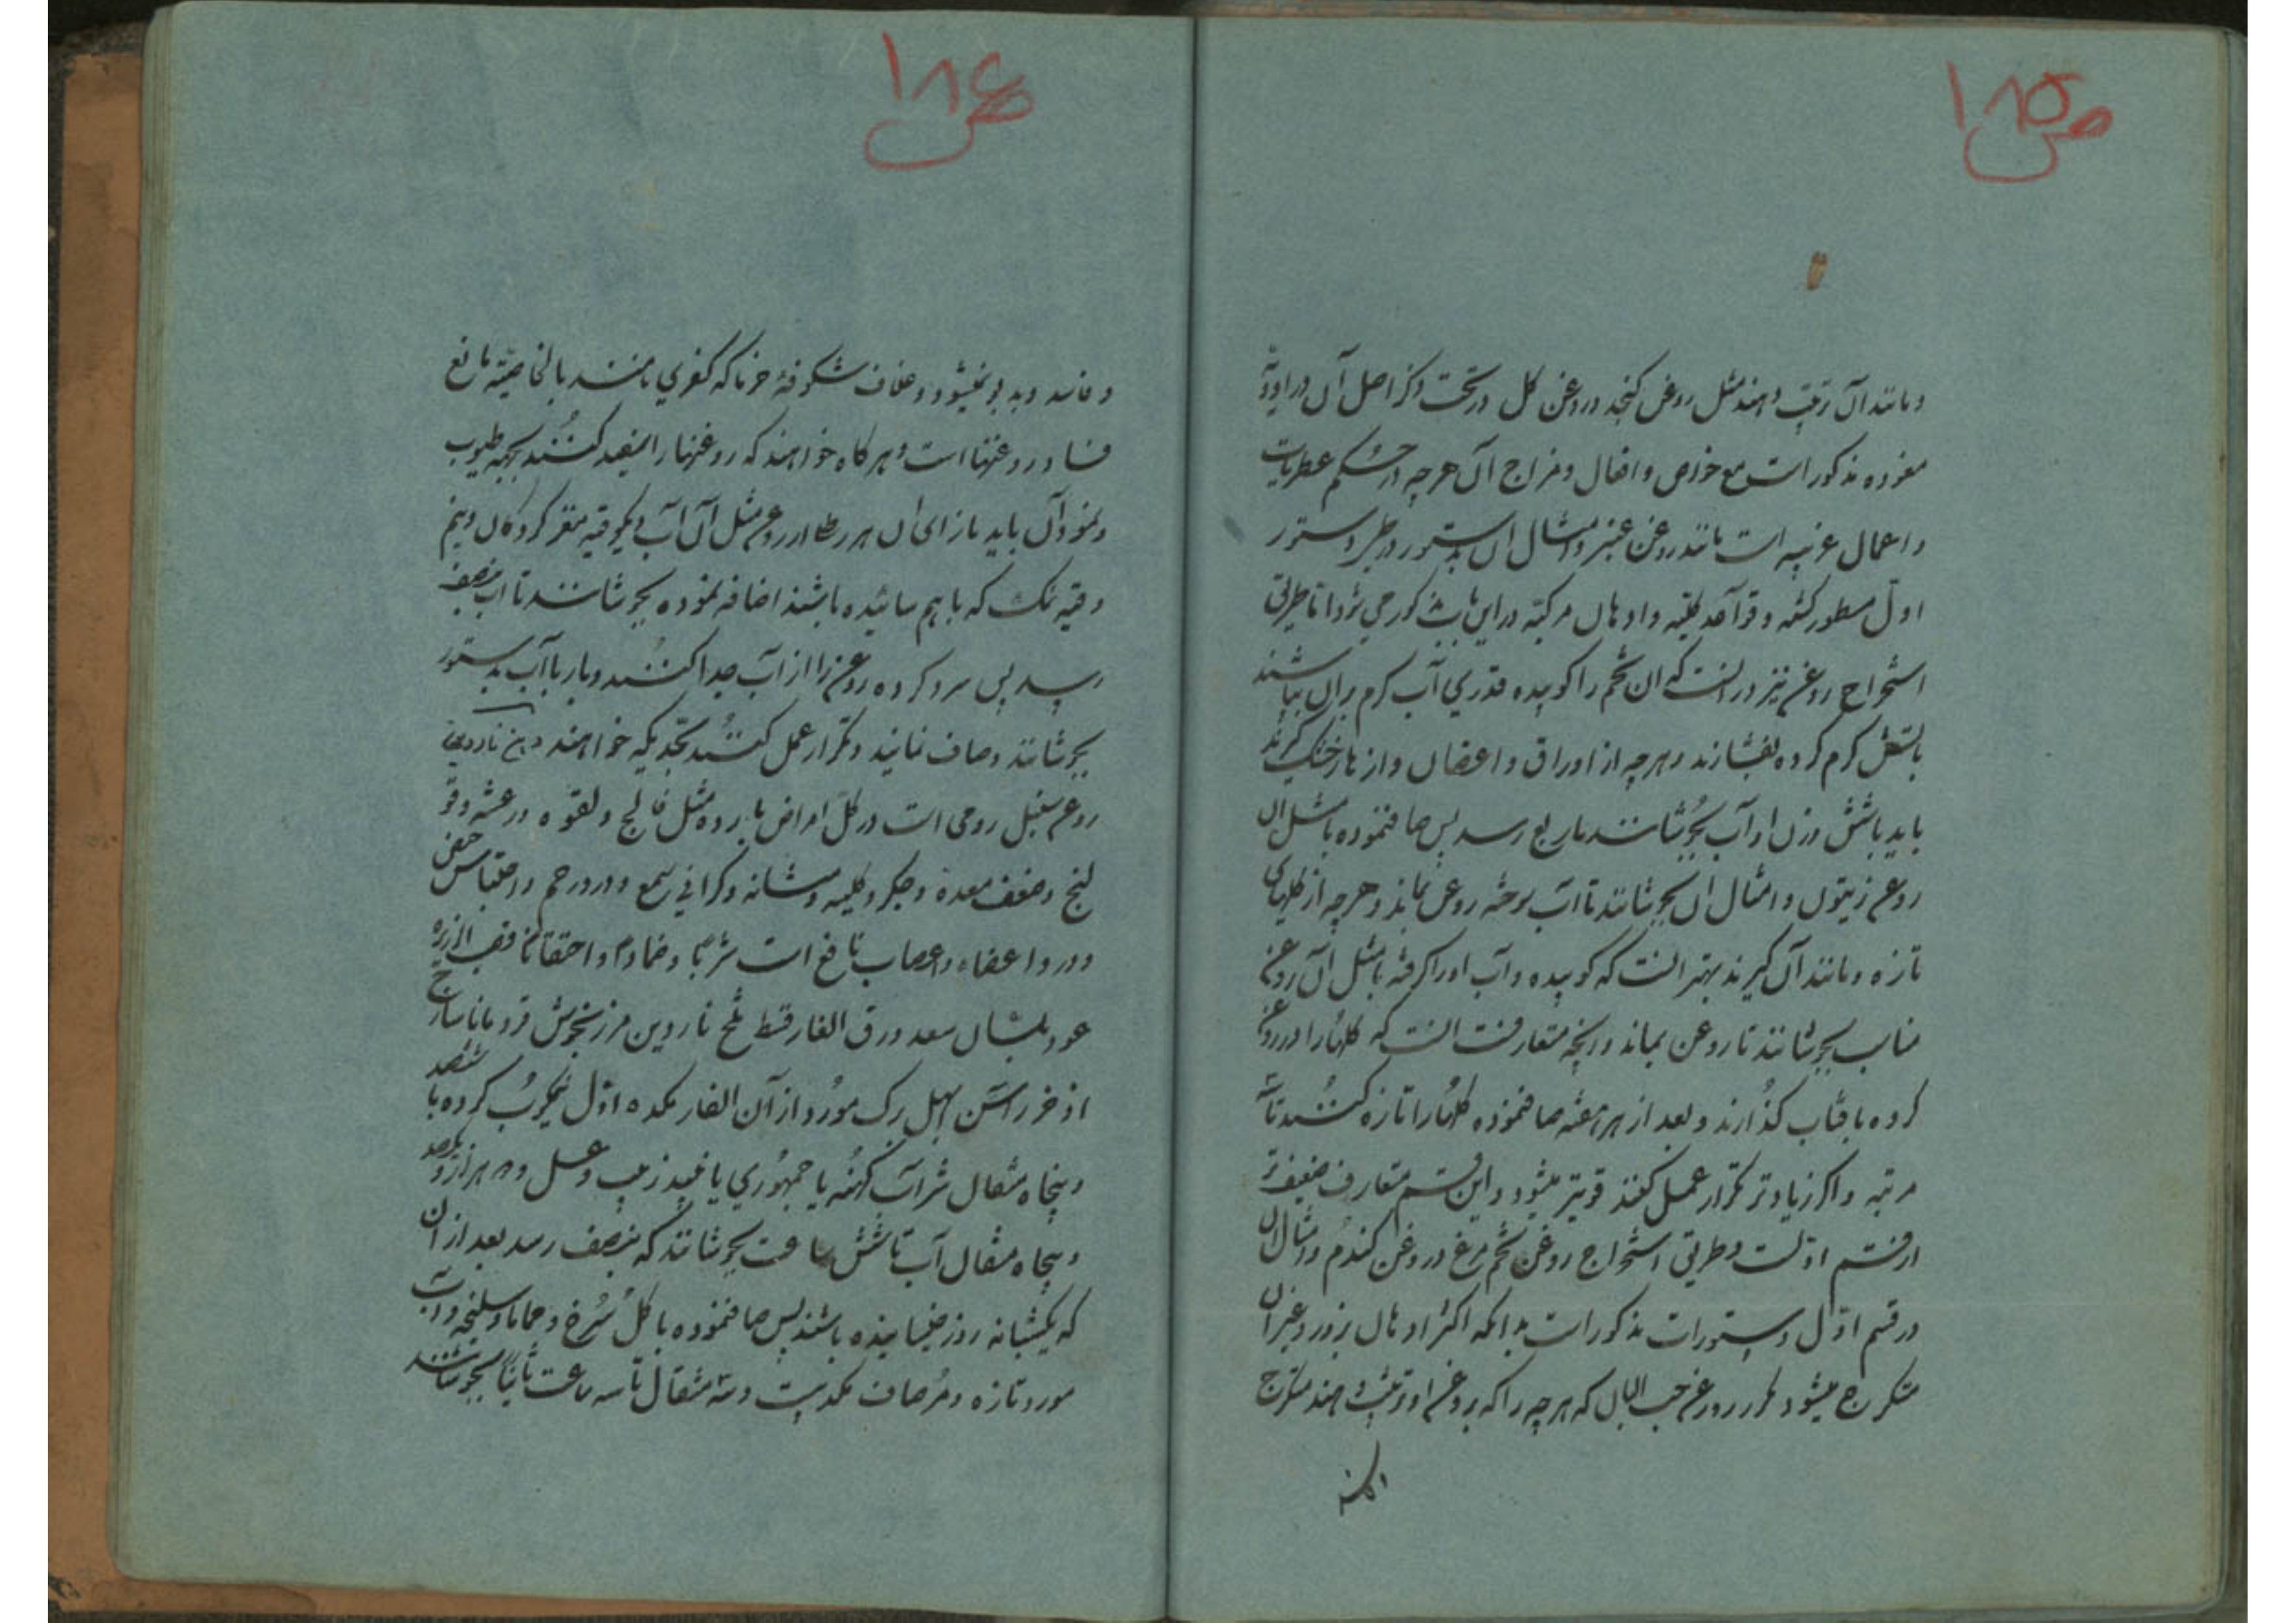 ص ۱۸۵
و مانند آن ترتیب دهند مثل روغن کنجد و روغن کل در تحت ذکر اصل آن در ادویه
مفرده مذکور است مع خواص و افعال و مزاج آن هرچه در حکم عطریات
و اعمال غریبه است مانند روغن عنبر و امثال ان بدستور در طی دستور
اول مسطور کشته و قواعد کلیه و ادهان مرکبه در این باب مذکور می شود اما طریق
استخراج روغن تیز در انست که ان تخم را کوبیده قدری آب کرم بر ان بپاشند
باتش کرم کرده بفشارند و هرچه از اوراق و اغصان و ازهار خشک کیرند
باید باشش وزن او آب بجوشانند تا بربع رسد پس صاف نموده با مثل ان
روغن زیتون و امثال ان بجوشانند تا آب سوخته روغن بماند و هرچه از کلهای
تازه و مانند آن کیرند بهتر انست که کوبیده و آب او را کرفته با مثل آن روغن
مناسب بجوشانند تا روغن بماند و انچه متعارفست انست که کلها را در روغن
کرده بافتاب کذارند و بعد از هر هفته صاف نموده کلها را تازه کنند تا سه
مرتبه و اکر زیادتر تکرار عمل کنند قویتر میشود و این قسم متعارف ضعیف تر
از قسم اولست و طریق استخراج روغن تخم مرغ و روغن کندم و امثال ان
در قسم اول دستورات مذکور است بدانکه اکثر ادهان بزور و غیر آن
متکرج میشود مکر روغن حب البان که هرچه را که بروغن او ترتیب دهند متکرج
ص ۱۸۶
و فاسد و بد بو نمیشود و غلاف شکوفهٔ خرما که کفری نامند بالخاصیته مانع
فساد روغنها است و هر کاه خواهند که روغنها را منعقد کنند بجهه طیوب
و نمودآن باید بازای ان هر رطل از روغن مثل آن آب و یکوقیه مقر کردکان و نیم
وقیه نمک که باهم سائیده باشند اضافه نموده بجوشانند تا آب بنصف
رسد پس سرد کرده روغن را از آب جدا کنند و باز با آب بدستور
بجوشانند و صاف نمایند و تکرار عمل کنند بحدیکه خواهند دهن ناردین
روغن سنبل رومی است در کل امراض بارده مثل فالج و لقوه و رعشه و قو
لنج و ضعف معده و جکر و کلیه و مثانه و کرانی سمع و درد رحم و احتباس حیض
و درد اعضاء و اعصاب نافع است شربا و ضمادا و احتقانا قصب الذریره
عود بلسان سعد ورق الغار قسط تلخ ناردین مرزنجوش قردمانا ساذج
اذخر راسن ابهل برک مورد از آن الفار یکده اول نیمکوب کرده با ششصد
و پنجاه مثقال شراب کهنه یا جمهوری یا نبیذ زبیب و عسل و هر هزار و یکصد
و پنجاه مثقال آب تا شش ساعت بجوشانند که بنصف رسد بعد از ان
که یکشبانه روز خیسانیده باشند پس صاف نموده با کل سرخ و حماما و سلیخه و آب
مورد تازه و مر صاف یکد بیست و سه مثقال تا سه ساعت ثانیا بجوشانند